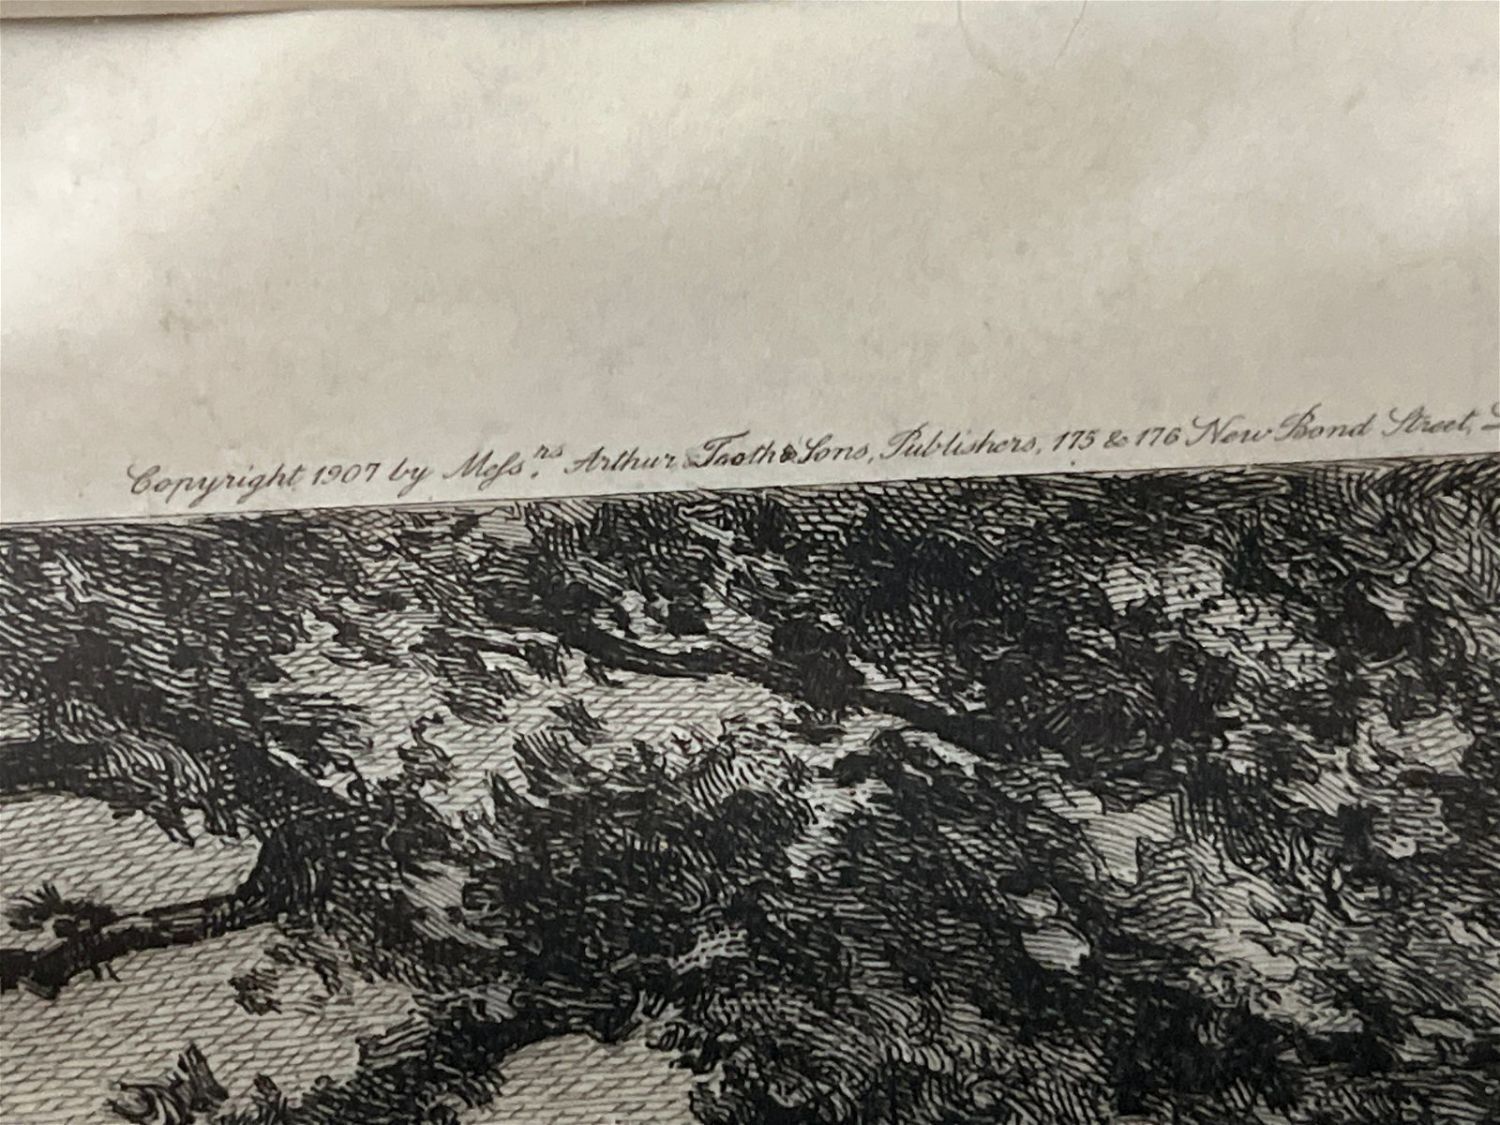 Copyright 1907 by Mess.rs Arthur Tooth & Sons, Publishers, 175 & 176 New Bond Street,